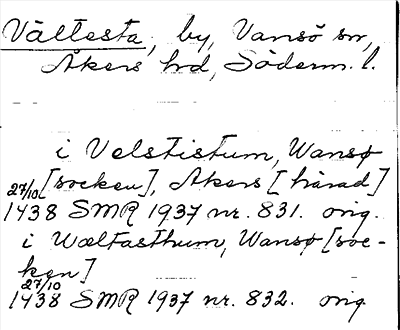 Vältesta, by, Vansö sn,
Åkers hd, Söderm. l.
i Velstistum, Wansø
[socken], Akers [härad]
27/10 1438 SMR 1937 nr. 831. orig.
i Wæltasthum, Wansø [soc-
ken]
27/10 1438 SMR 1937 nr. 832. orig